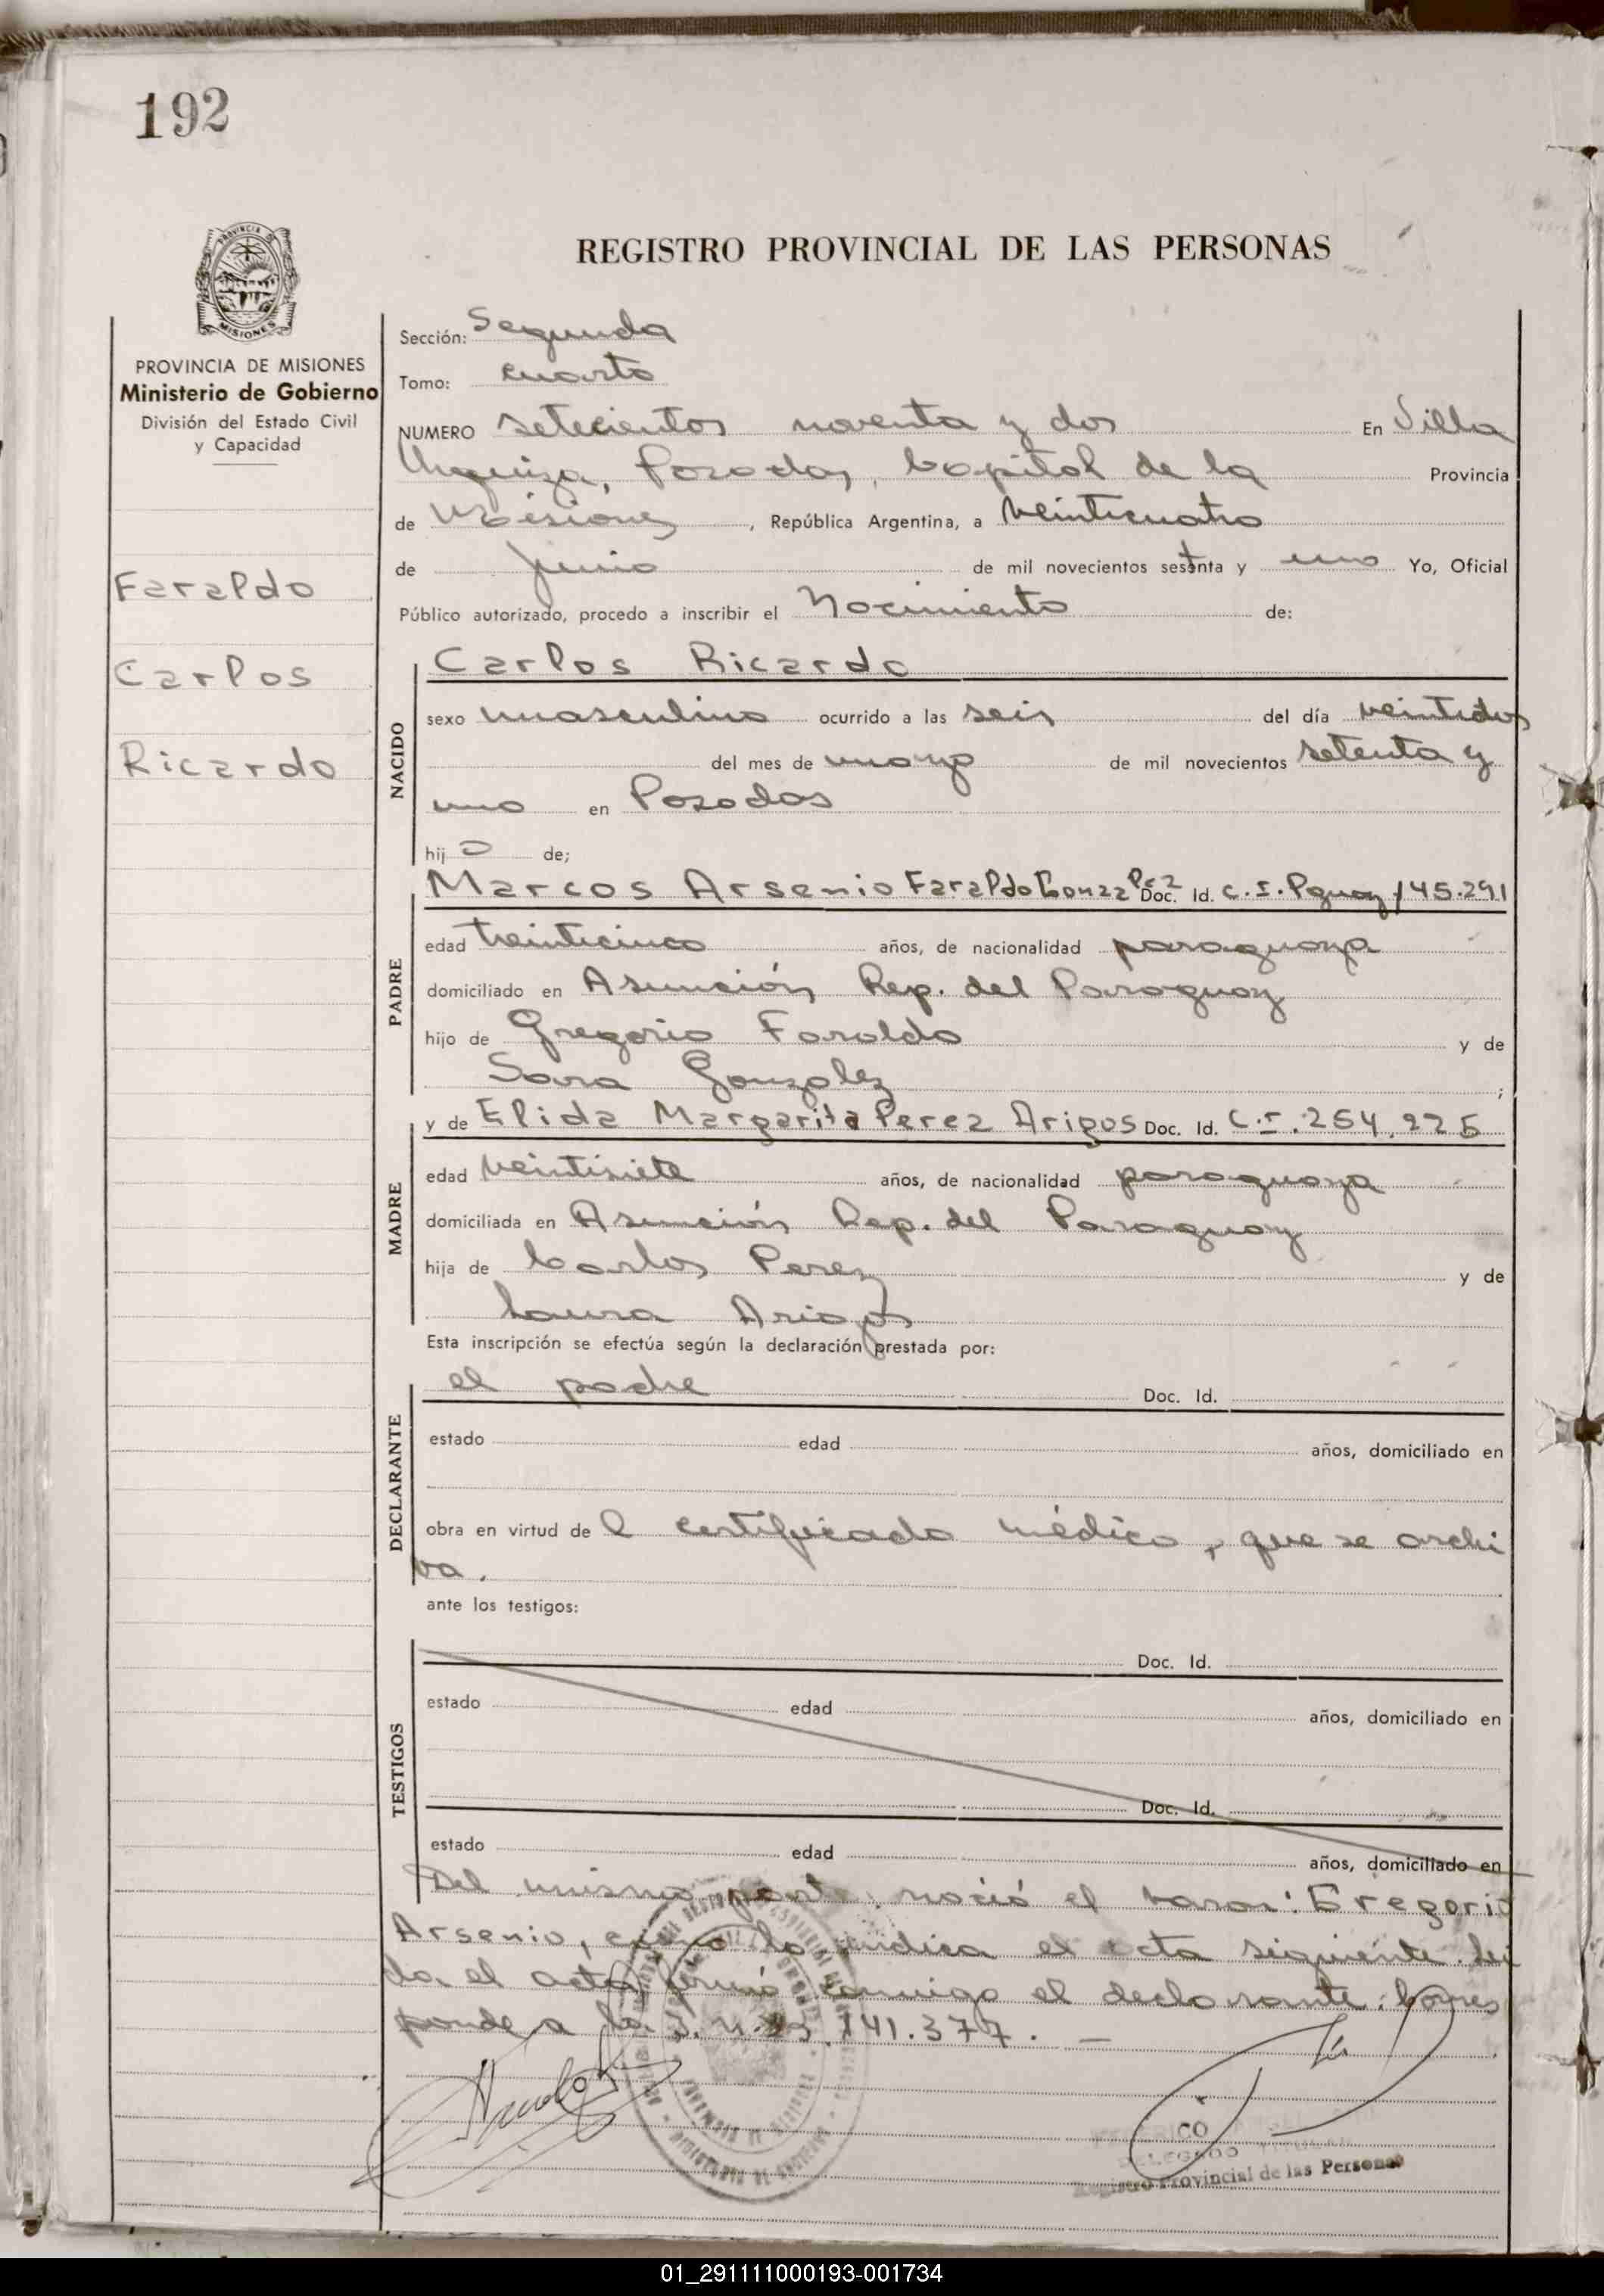 192
REGISTRO PROVINCIAL DE LAS PERSONAS
PROVINCIA DE MISIONES
Ministerio de Gobierno
División del Estado Civil
y Capacidad
Faraldo
Carlos
Ricardo
Sección: Segunda
Tomo: cuarto
NUMERO setecientos noventa y dos En Villa
Urquiza, Posadas, Capital de la Provincia
de Misiones, República Argentina, a veinticuatro
de junio de mil novecientos setenta y uno Yo, Oficial
Público autorizado, procedo a inscribir el Nacimiento de:
Carlos Ricardo
NACIDO
sexo masculino ocurrido a las seis del día veintidos
del mes de marzo de mil novecientos setenta y
uno en Posadas
hijo de;
PADRE
Marcos Arsenio Faraldo Gonzalez Doc. Id. C.I. Pguay 145.291
edad treinticinco años, de nacionalidad paraguaya
domiciliado en Asunción Rep. del Paraguay
hijo de Gregorio Faraldo y de
Sara Gonzalez ;
MADRE
y de Elida Margarita Perez Arigos Doc. Id. C.I. 254.225
edad veintisiete años, de nacionalidad paraguaya
domiciliada en Asunción Rep. del Paraguay
hija de Carlos Perez y de
Laura Arigos
Esta inscripción se efectúa según la declaración prestada por:
DECLARANTE
el padre Doc. Id.
estado edad años, domiciliado en
obra en virtud del certificado médico, que se archi
va.
ante los testigos:
TESTIGOS
Doc. Id.
estado edad años, domiciliado en
Doc. Id.
estado edad años, domiciliado en
Del mismo parto nació el varon: Gregorio
Arsenio, como lo indica el acta siguiente. Lei
da el acta firmó conmigo el declarante. Corres
ponde a la 141.377. —
DELEGADO
Registro Provincial de las Personas
01_291111000193-001734